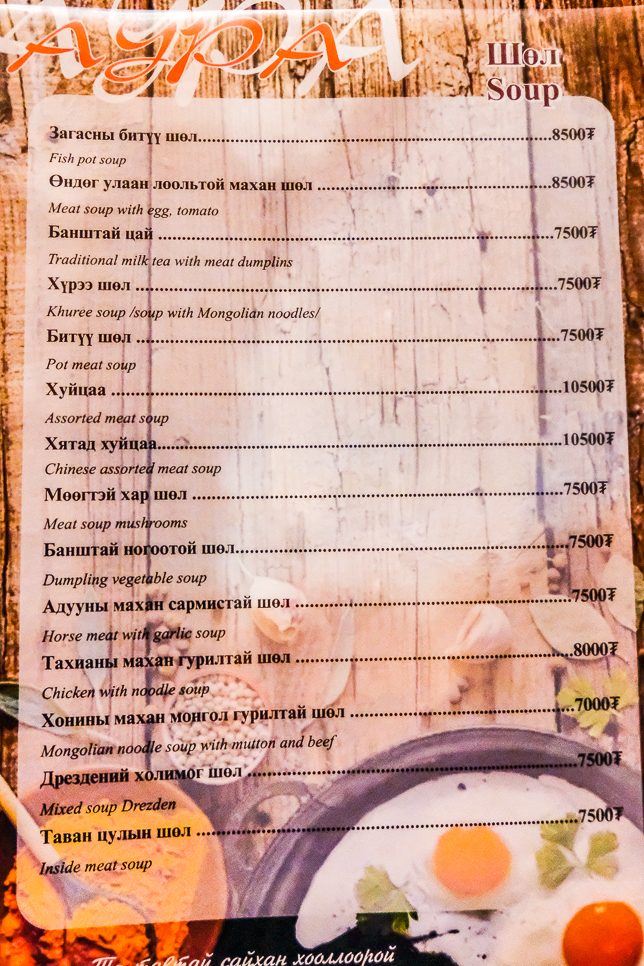 АУРА
Шөл
Soup
Загасны битүү шөл........................8500₮
Fish pot soup
Өндөг улаан лоольтой махан шөл ........................8500₮
Meat soup with egg, tomato
Банштай цай ........................7500₮
Traditional milk tea with meat dumplins
Хүрээ шөл ........................7500₮
Khuree soup /soup with Mongolian noodles/
Битүү шөл ........................7500₮
Pot meat soup
Хуйцаа ........................10500₮
Assorted meat soup
Хятад хуйцаа........................10500₮
Chinese assorted meat soup
Мөөгтэй хар шөл ........................7500₮
Meat soup mushrooms
Банштай ногоотой шөл........................7500₮
Dumpling vegetable soup
Адууны махан сармистай шөл ........................7500₮
Horse meat with garlic soup
Тахианы махан гурилтай шөл ........................8000₮
Chicken with noodle soup
Хонины махан монгол гурилтай шөл ........................7000₮
Mongolian noodle soup with mutton and beef
Дрездений холимог шөл ........................7500₮
Mixed soup Drezden
Таван цулын шөл ........................7500₮
Inside meat soup
сайхан хооллоорой